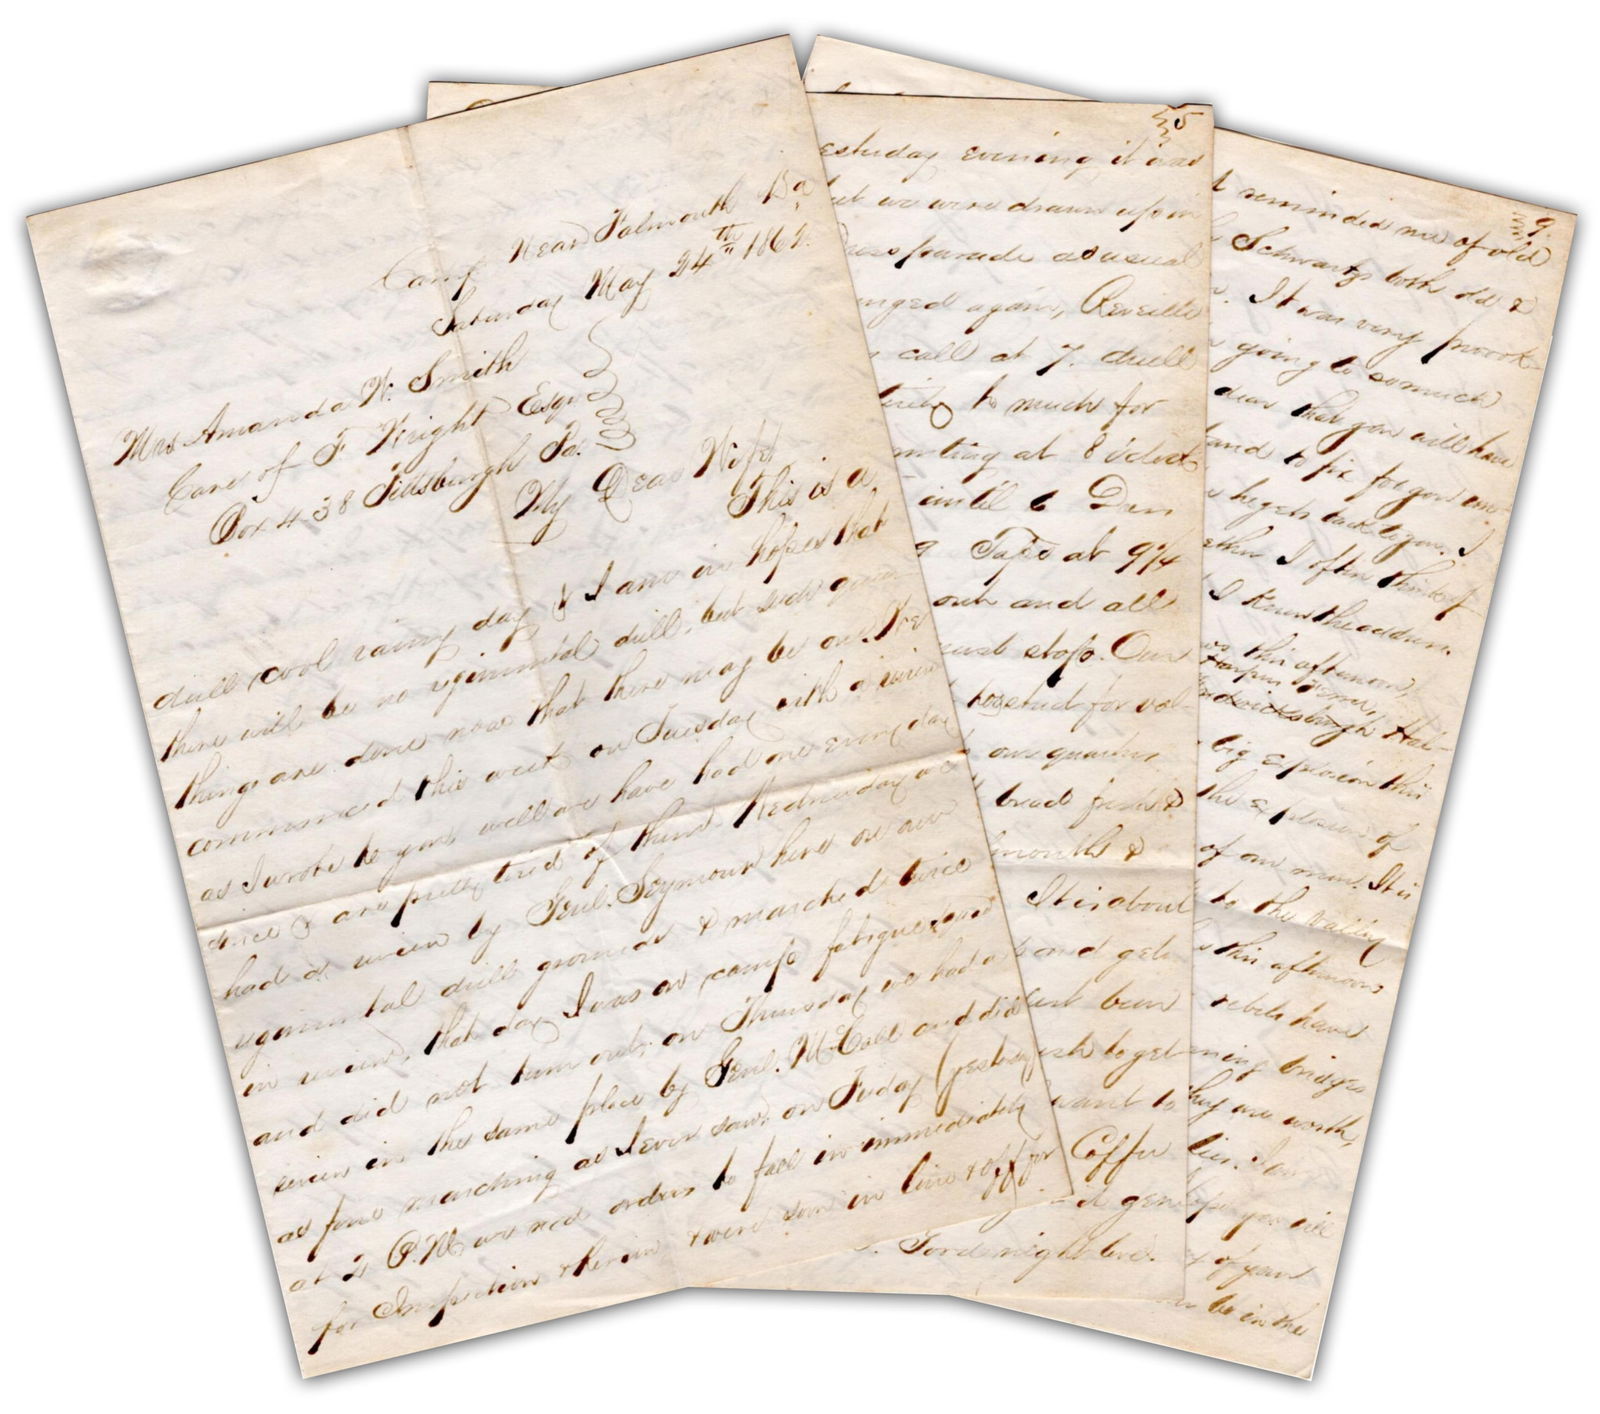 Camp Near Falmouth Va
Saturday May 24th 1862.
Mrs Amanda W. Smith
Care of F Wright Esqr
Box 438 Pittsburgh Pa.
My Dear Wife
This is a
dull cool rainy day & I am in hopes that
there will be no regimental drill, but such queer
things are done now that there may be one. We
commenced this week on Tuesday with a review
as I wrote to you, well we have had one every day
since & are pretty tired of them. Wednesday we
had a review by Genl. Seymour here on our
regimental drill grounds & marched twice
in review, that day I was on camp fatigue
and did not turn out, on Thursday we had a
review in the same place by Genl. McCall and did
as fine marching as I ever saw, on Friday (yesterday
at 4 P.M. we had orders to fall in immediately
for Inspection & Review & were soon in line & off for
5
yesterday evening it was
but we were drawn up in
Dress parade as usual
again, Reveille
call at 7. drill
to much for
at 8 o'clock
until 6
Taps at 9 1/4
out and all
must stop. Our
for
our quarters
bread fresh &
months &
It is about
and get
just been
to get
want to
Coffee
Good night love.
9
reminded me of old
Schwartz both old &
It was very provok-
going to so much
dear that you will have
hand to fix for you
he gets back to you. I
I often think of
I knew the address.
this afternoon,
Harpers Ferry,
Fredricksburgh
big explosion this
the explosion of
of our men. It is
to the valley
this afternoon
rebels have
burning bridges
they are worth,
hope you will
of your
be in the